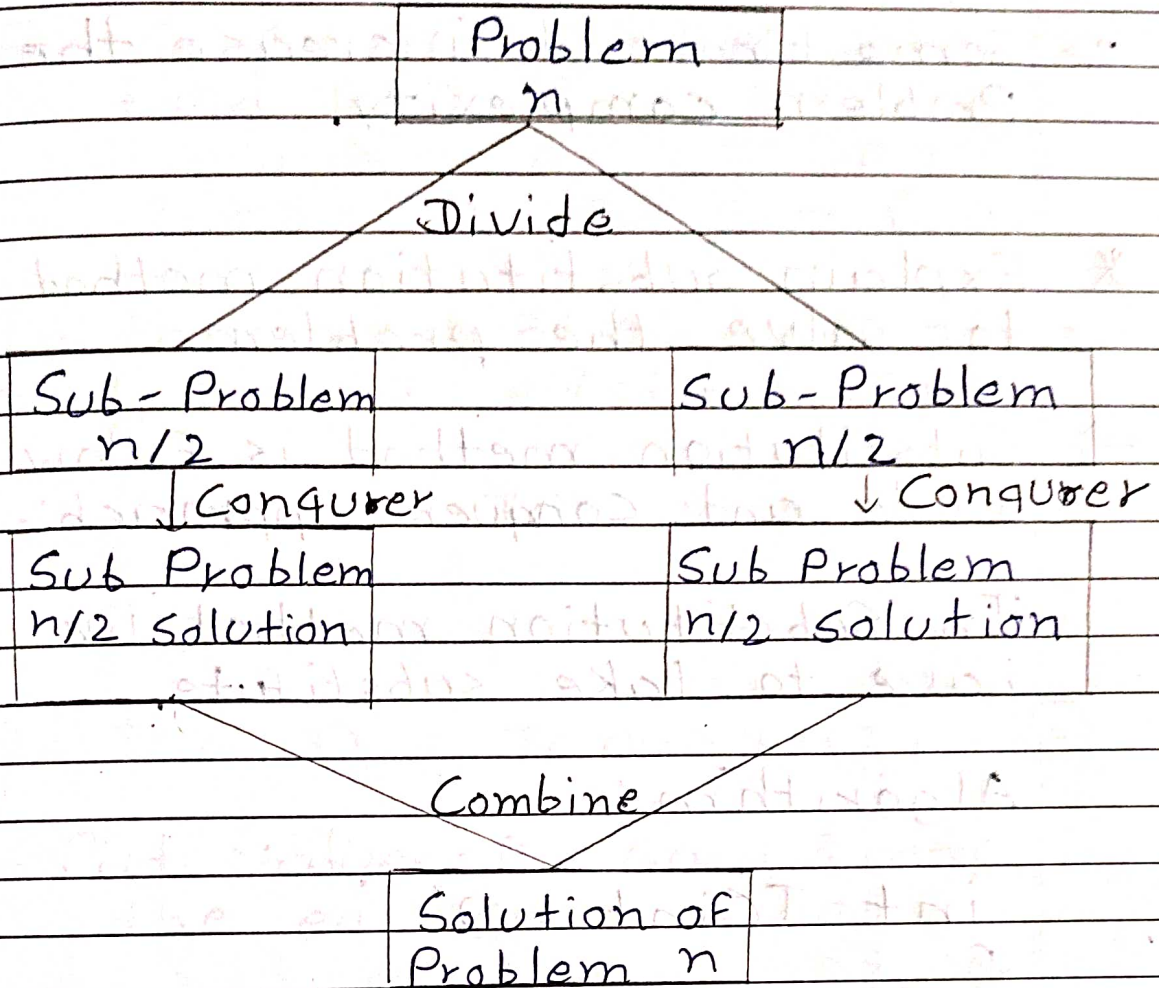 Problem
n
Divide
Sub - Problem
n/2
Sub - Problem
n/2
↓ Conqurer
↓ Conqurer
Sub Problem
n/2 solution
Sub Problem
n/2 solution
Combine
Solution of
Problem n